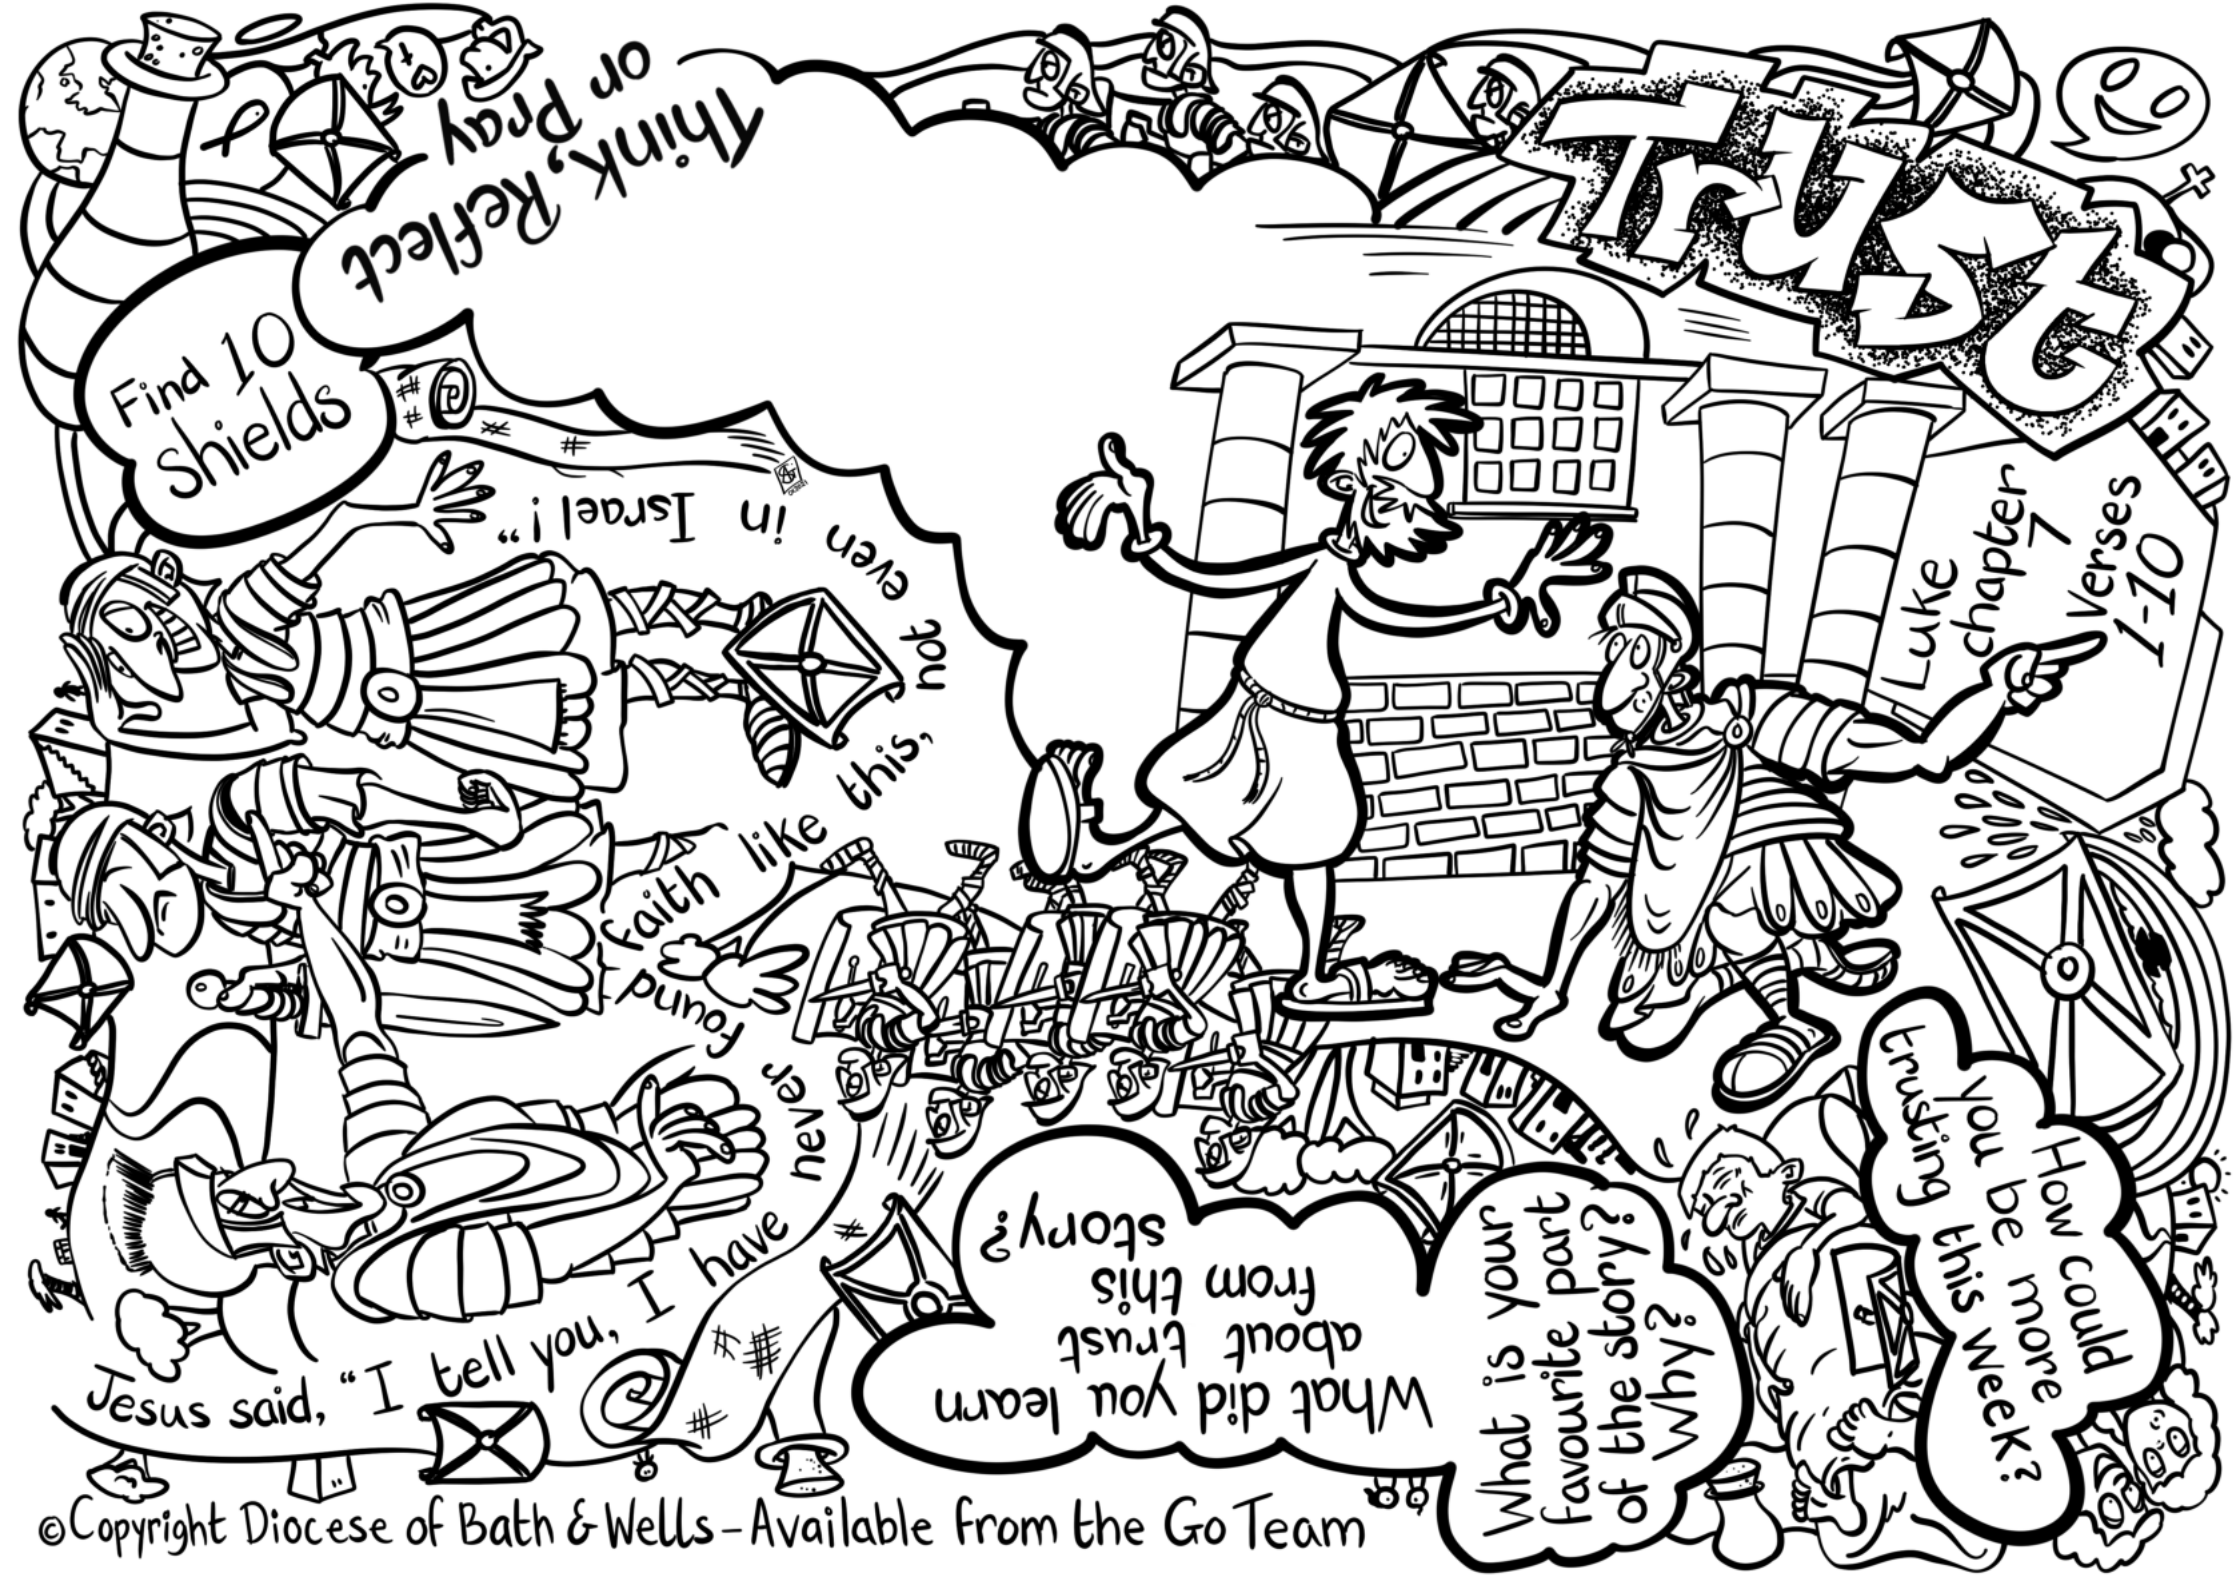 Think, Reflect
or Pray
Trust
Find 10
Shields
Luke
chapter
7
Verses
1-10
Jesus said, “I tell you, I have never found faith like this, not even in Israel!”
What did you learn
about trust
from this
story?
What is your
favourite part
of the story?
Why?
How could
you be more
trusting this week?
©Copyright Diocese of Bath & Wells – Available from the Go Team